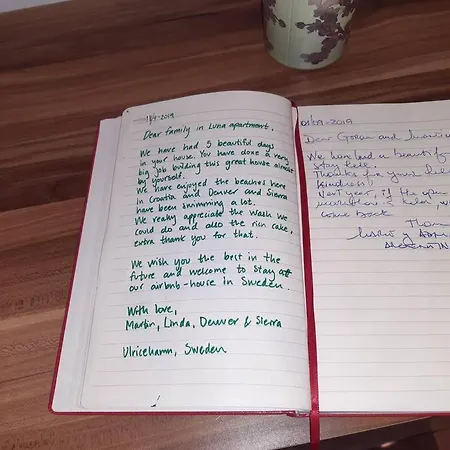 1/9-2019
Dear family in Luna apartment,
We have had 5 beautiful days
in your house. You have done a very
big job building this great house almost
by yourself.
We have enjoyed the beaches here
in Croatia and Denver and Sierra
have been swimming a lot.
We really appreciate the wash we
could do and also the rich cake,
extra thank you for that.
We wish you the best in the
future and welcome to stay at
our airbnb-house in Sweden.
With love,
Martin, Linda, Denver & Sierra
Ulricehamn, Sweden
-2019
Dear Goran and
We have had a beautiful
stay here.
Thanks for your
kindness!
Next year, if
come back